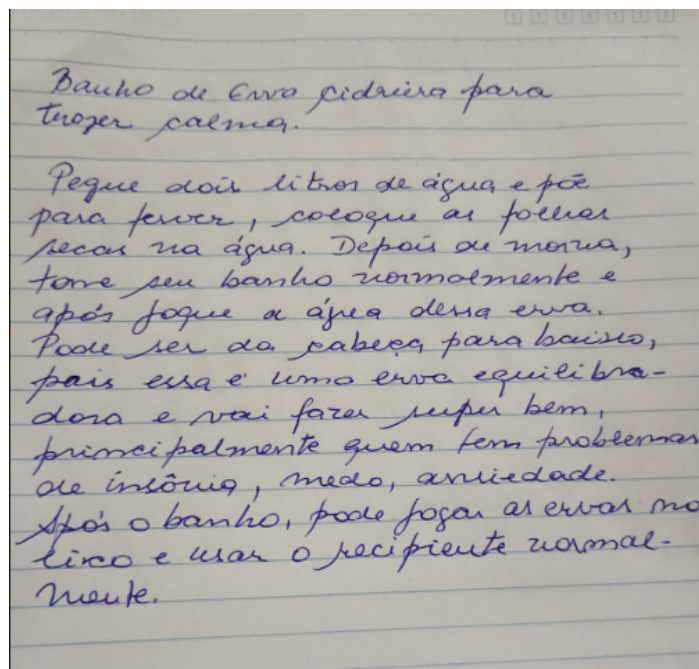 Banho de Erva Cidreira para
trazer calma.
Pegue dois litros de água e põe
para ferver, coloque as folhas
secas na água. Depois de morna,
tome seu banho normalmente e
após jogue a água dessa erva.
Pode ser da cabeça para baixo,
pois essa é uma erva equilibra-
dora e vai fazer super bem,
principalmente quem tem problemas
de insônia, medo, ansiedade.
Após o banho, pode jogar as ervas no
lixo e usar o recipiente normal-
mente.